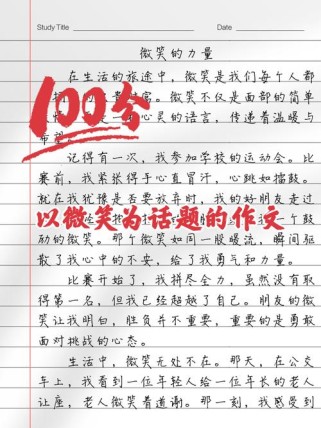 Study Title
Date
微笑的力量
在生活的旅途中,微笑是我们每个人都
财富。微笑不仅是面部的简单
心灵的语言,传递着温暖与
希望。
100分
记得有一次,我参加学校的运动会。比
赛前,我紧张得手心直冒汗,心跳如擂鼓。
就在我犹豫是否要放弃时,我的好朋友走过
一个鼓
以微笑为话题的作文
励的微笑。那个微笑如同一股暖流,瞬间驱
散了我心中的不安,给了我勇气和力量。
比赛开始了,我拼尽全力,虽然没有取
得第一名,但我已经超越了自己。朋友的微
笑让我明白,胜负并不重要,重要的是勇敢
面对挑战的心态。
生活中,微笑无处不在。那天,在公交
车上,我看到一位年轻人给一位年长的老人
让座,老人微笑着道谢。那一刻,我感受到